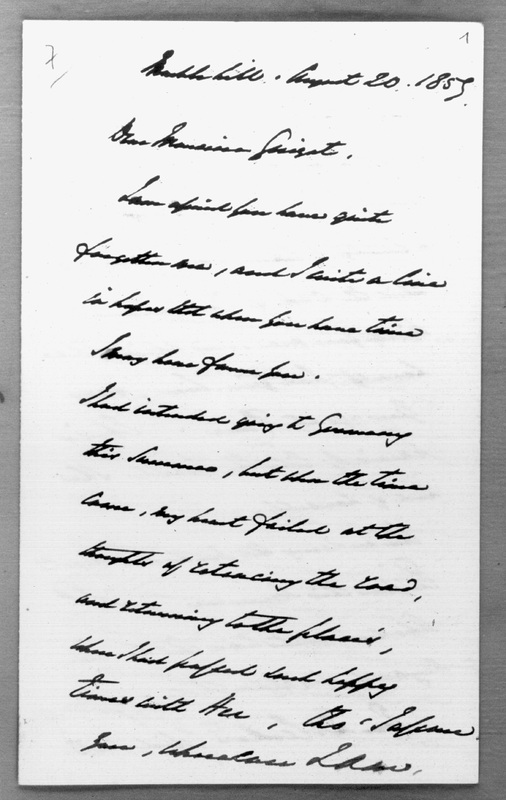 1
Hill. August 20. 1859.
Dear Monsieur Guizot,
I am afraid you have quite
forgotten me, and I write a line
in hopes that when you have time
I may hear from you.
I had intended going to Germany
this Summer, but when the time
came, my heart failed at the
thought of retracing the road,
and returning to the places,
where I had passed such happy
times with Her, tho' I assure
you, wherever I am,